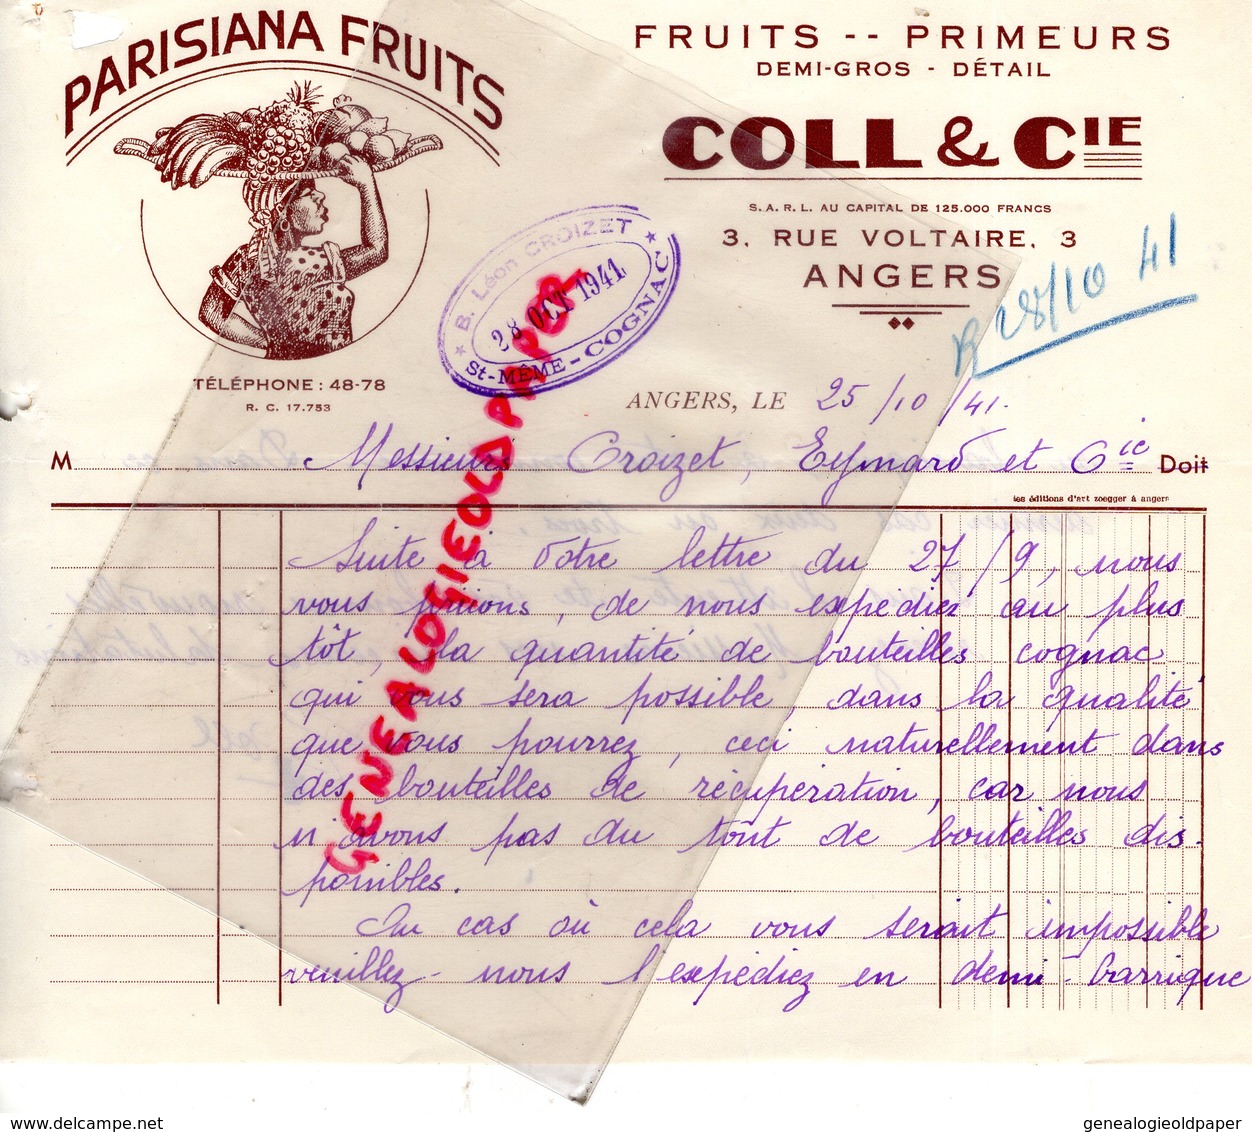 PARISIANA FRUITS
TÉLÉPHONE : 48-78
R. C. 17.753
FRUITS -- PRIMEURS
DEMI-GROS - DÉTAIL
COLL & CIE
S.A.R.L. AU CAPITAL DE 125.000 FRANCS
3, RUE VOLTAIRE, 3
ANGERS
R 28/10 41
B. Léon CROIZET
28 OCT 1941
St-MÊME-COGNAC
ANGERS, LE 25/10/41.
M Messieurs Croizet, Eymard et Cie Doit
les éditions d'art zoegger à angers
Suite à votre lettre du 27/9, nous
vous prions, de nous expédier au plus
tôt, la quantité de bouteilles cognac
qui vous sera possible, dans la qualité
que vous pourrez, ceci naturellement dans
des bouteilles de récupération, car nous
n'avons pas du tout de bouteilles dis-
ponibles.
Au cas où cela vous serait impossible
veuillez-nous l'expédiez en demi-barrique
GENEALOGIEOLDPAPER
genealogieoldpaper